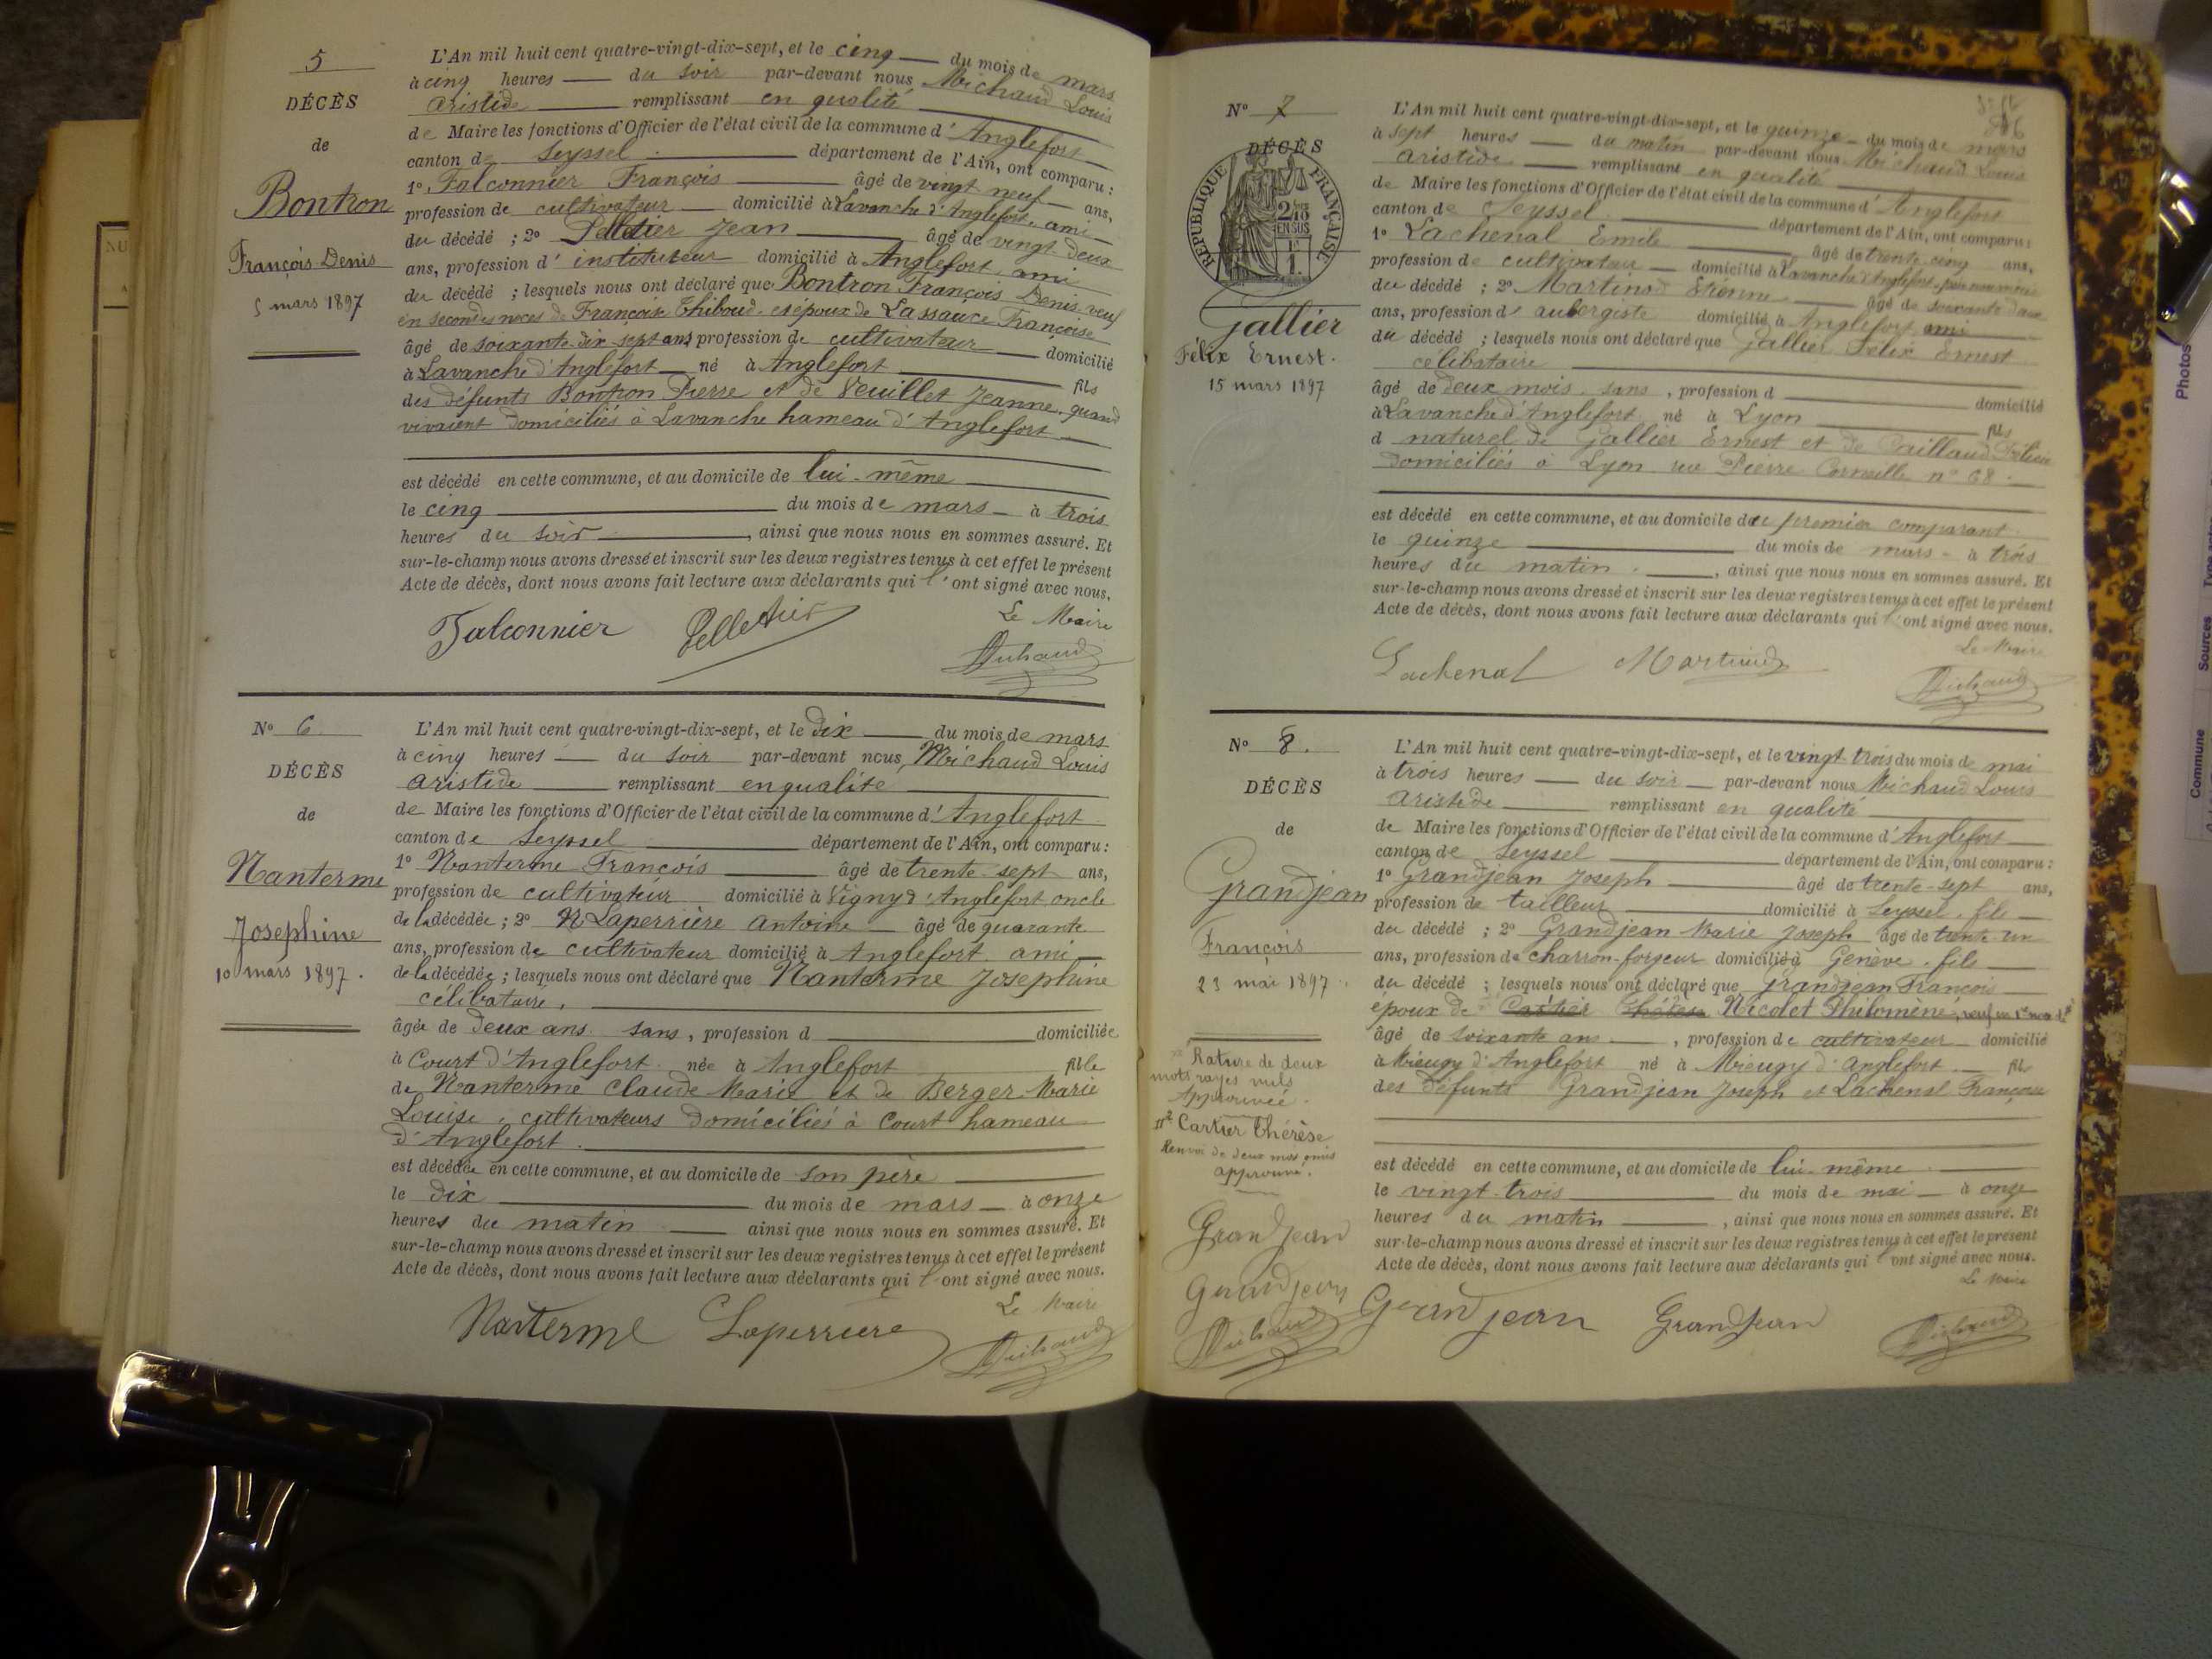 5
DÉCÈS
de
Bontron
François Denis
5 mars 1897
L'An mil huit cent quatre-vingt-dix-sept, et le cinq du mois de mars
à cinq heures du soir par-devant nous Michaud Louis
aristide remplissant en qualité
de Maire les fonctions d'Officier de l'état civil de la commune d'Anglefort
canton de Seyssel département de l'Ain, ont comparu :
1º Falconnier François âgé de vingt neuf ans,
profession de cultivateur domicilié à Lavanche d'Anglefort, ami
du décédé ; 2º Pelletier Jean âgé de vingt deux
ans, profession d'instituteur domicilié à Anglefort ami
du décédé ; lesquels nous ont déclaré que Bontron François Denis veuf
en secondes noces de Françoise Thiboud et époux de Lassauce Françoise
âgé de soixante dix sept ans profession de cultivateur domicilié
à Lavanche d'Anglefort né à Anglefort fils
des défunts Bontron Pierre et de Veuillet Jeanne, quand
vivaient domiciliés à Lavanche hameau d'Anglefort
est décédé en cette commune, et au domicile de lui-même
le cinq du mois de mars à trois
heures du soir, ainsi que nous nous en sommes assuré. Et
sur-le-champ nous avons dressé et inscrit sur les deux registres tenus à cet effet le présent
Acte de décès, dont nous avons fait lecture aux déclarants qui l'ont signé avec nous.
Le Maire
Falconnier Pelletier Michaud
Nº 6
DÉCÈS
de
Nanterme
Josephine
10 mars 1897.
L'An mil huit cent quatre-vingt-dix-sept, et le dix du mois de mars
à cinq heures du soir par-devant nous Michaud Louis
aristide remplissant en qualité
de Maire les fonctions d'Officier de l'état civil de la commune d'Anglefort
canton de Seyssel département de l'Ain, ont comparu :
1º Nanterme François âgé de trente sept ans,
profession de cultivateur domicilié à Vigny d'Anglefort oncle
de la décédée ; 2º Laperrière Antoine âgé de quarante
ans, profession de cultivateur domicilié à Anglefort ami
de la décédée ; lesquels nous ont déclaré que Nanterme Josephine
célibataire,
âgée de deux ans. sans, profession d domiciliée
à Court d'Anglefort née à Anglefort fille
de Nanterme Claude Marie et de Berger Marie
Louise, cultivateurs domiciliés à Court hameau
d'Anglefort.
est décédée en cette commune, et au domicile de son père
le dix du mois de mars à onze
heures du matin ainsi que nous nous en sommes assuré. Et
sur-le-champ nous avons dressé et inscrit sur les deux registres tenus à cet effet le présent
Acte de décès, dont nous avons fait lecture aux déclarants qui l'ont signé avec nous.
Le Maire
Nanterme Laperriere Michaud
Nº 7
DÉCÈS
RÉPUBLIQUE FRANÇAISE
2/10 EN SUS
1 F.
Gallier
Félix Ernest.
15 mars 1897
L'An mil huit cent quatre-vingt-dix-sept, et le quinze du mois de mars
à sept heures du matin par-devant nous Michaud Louis
aristide remplissant en qualité
de Maire les fonctions d'Officier de l'état civil de la commune d'Anglefort
canton de Seyssel département de l'Ain, ont comparu :
1º Lachenal Emile âgé de trente cinq ans,
profession de cultivateur domicilié à Lavanche d'Anglefort, père nourricier
du décédé ; 2º Martinod Etienne âgé de soixante deux
ans, profession d'aubergiste domicilié à Anglefort ami
du décédé ; lesquels nous ont déclaré que Gallier Félix Ernest
célibataire
âgé de deux mois, sans, profession d domicilié
à Lavanche d'Anglefort né à Lyon fils
d naturel de Gallier Ernest et de Caillaud
domiciliés à Lyon rue Pierre Corneille nº 68.
est décédé en cette commune, et au domicile du premier comparant
le quinze du mois de mars à trois
heures du matin, ainsi que nous nous en sommes assuré. Et
sur-le-champ nous avons dressé et inscrit sur les deux registres tenus à cet effet le présent
Acte de décès, dont nous avons fait lecture aux déclarants qui l'ont signé avec nous.
Le Maire
Lachenal Martinod Michaud
Nº 8.
DÉCÈS
de
Grandjean
François
23 mai 1897.
Rature de deux
mots rayés nuls
Approuvée.
Cartier Thérèse
Renvoi de deux mots omis
approuvé.
Grandjean
Grandjean
Michaud
L'An mil huit cent quatre-vingt-dix-sept, et le vingt trois du mois de mai
à trois heures du soir par-devant nous Michaud Louis
Aristide remplissant en qualité
de Maire les fonctions d'Officier de l'état civil de la commune d'Anglefort
canton de Seyssel département de l'Ain, ont comparu :
1º Grandjean Joseph âgé de trente-sept ans,
profession de tailleur domicilié à Seyssel, fils
du décédé ; 2º Grandjean Marie Joseph âgé de trente un
ans, profession de charron-forgeur domicilié à Genève, fils
du décédé ; lesquels nous ont déclaré que Grandjean François
époux de Cartier Thérèse Nicolet Philomène, veuf en 1res noces de
âgé de soixante ans, profession de cultivateur domicilié
à Mieugy d'Anglefort né à Mieugy d'Anglefort fils
des défunts Grandjean Joseph et Lachenal Françoise
est décédé en cette commune, et au domicile de lui-même
le vingt-trois du mois de mai à onze
heures du matin, ainsi que nous nous en sommes assuré. Et
sur-le-champ nous avons dressé et inscrit sur les deux registres tenus à cet effet le présent
Acte de décès, dont nous avons fait lecture aux déclarants qui l'ont signé avec nous.
Le Maire
Grandjean Grandjean Michaud
Photos
Commune Sources